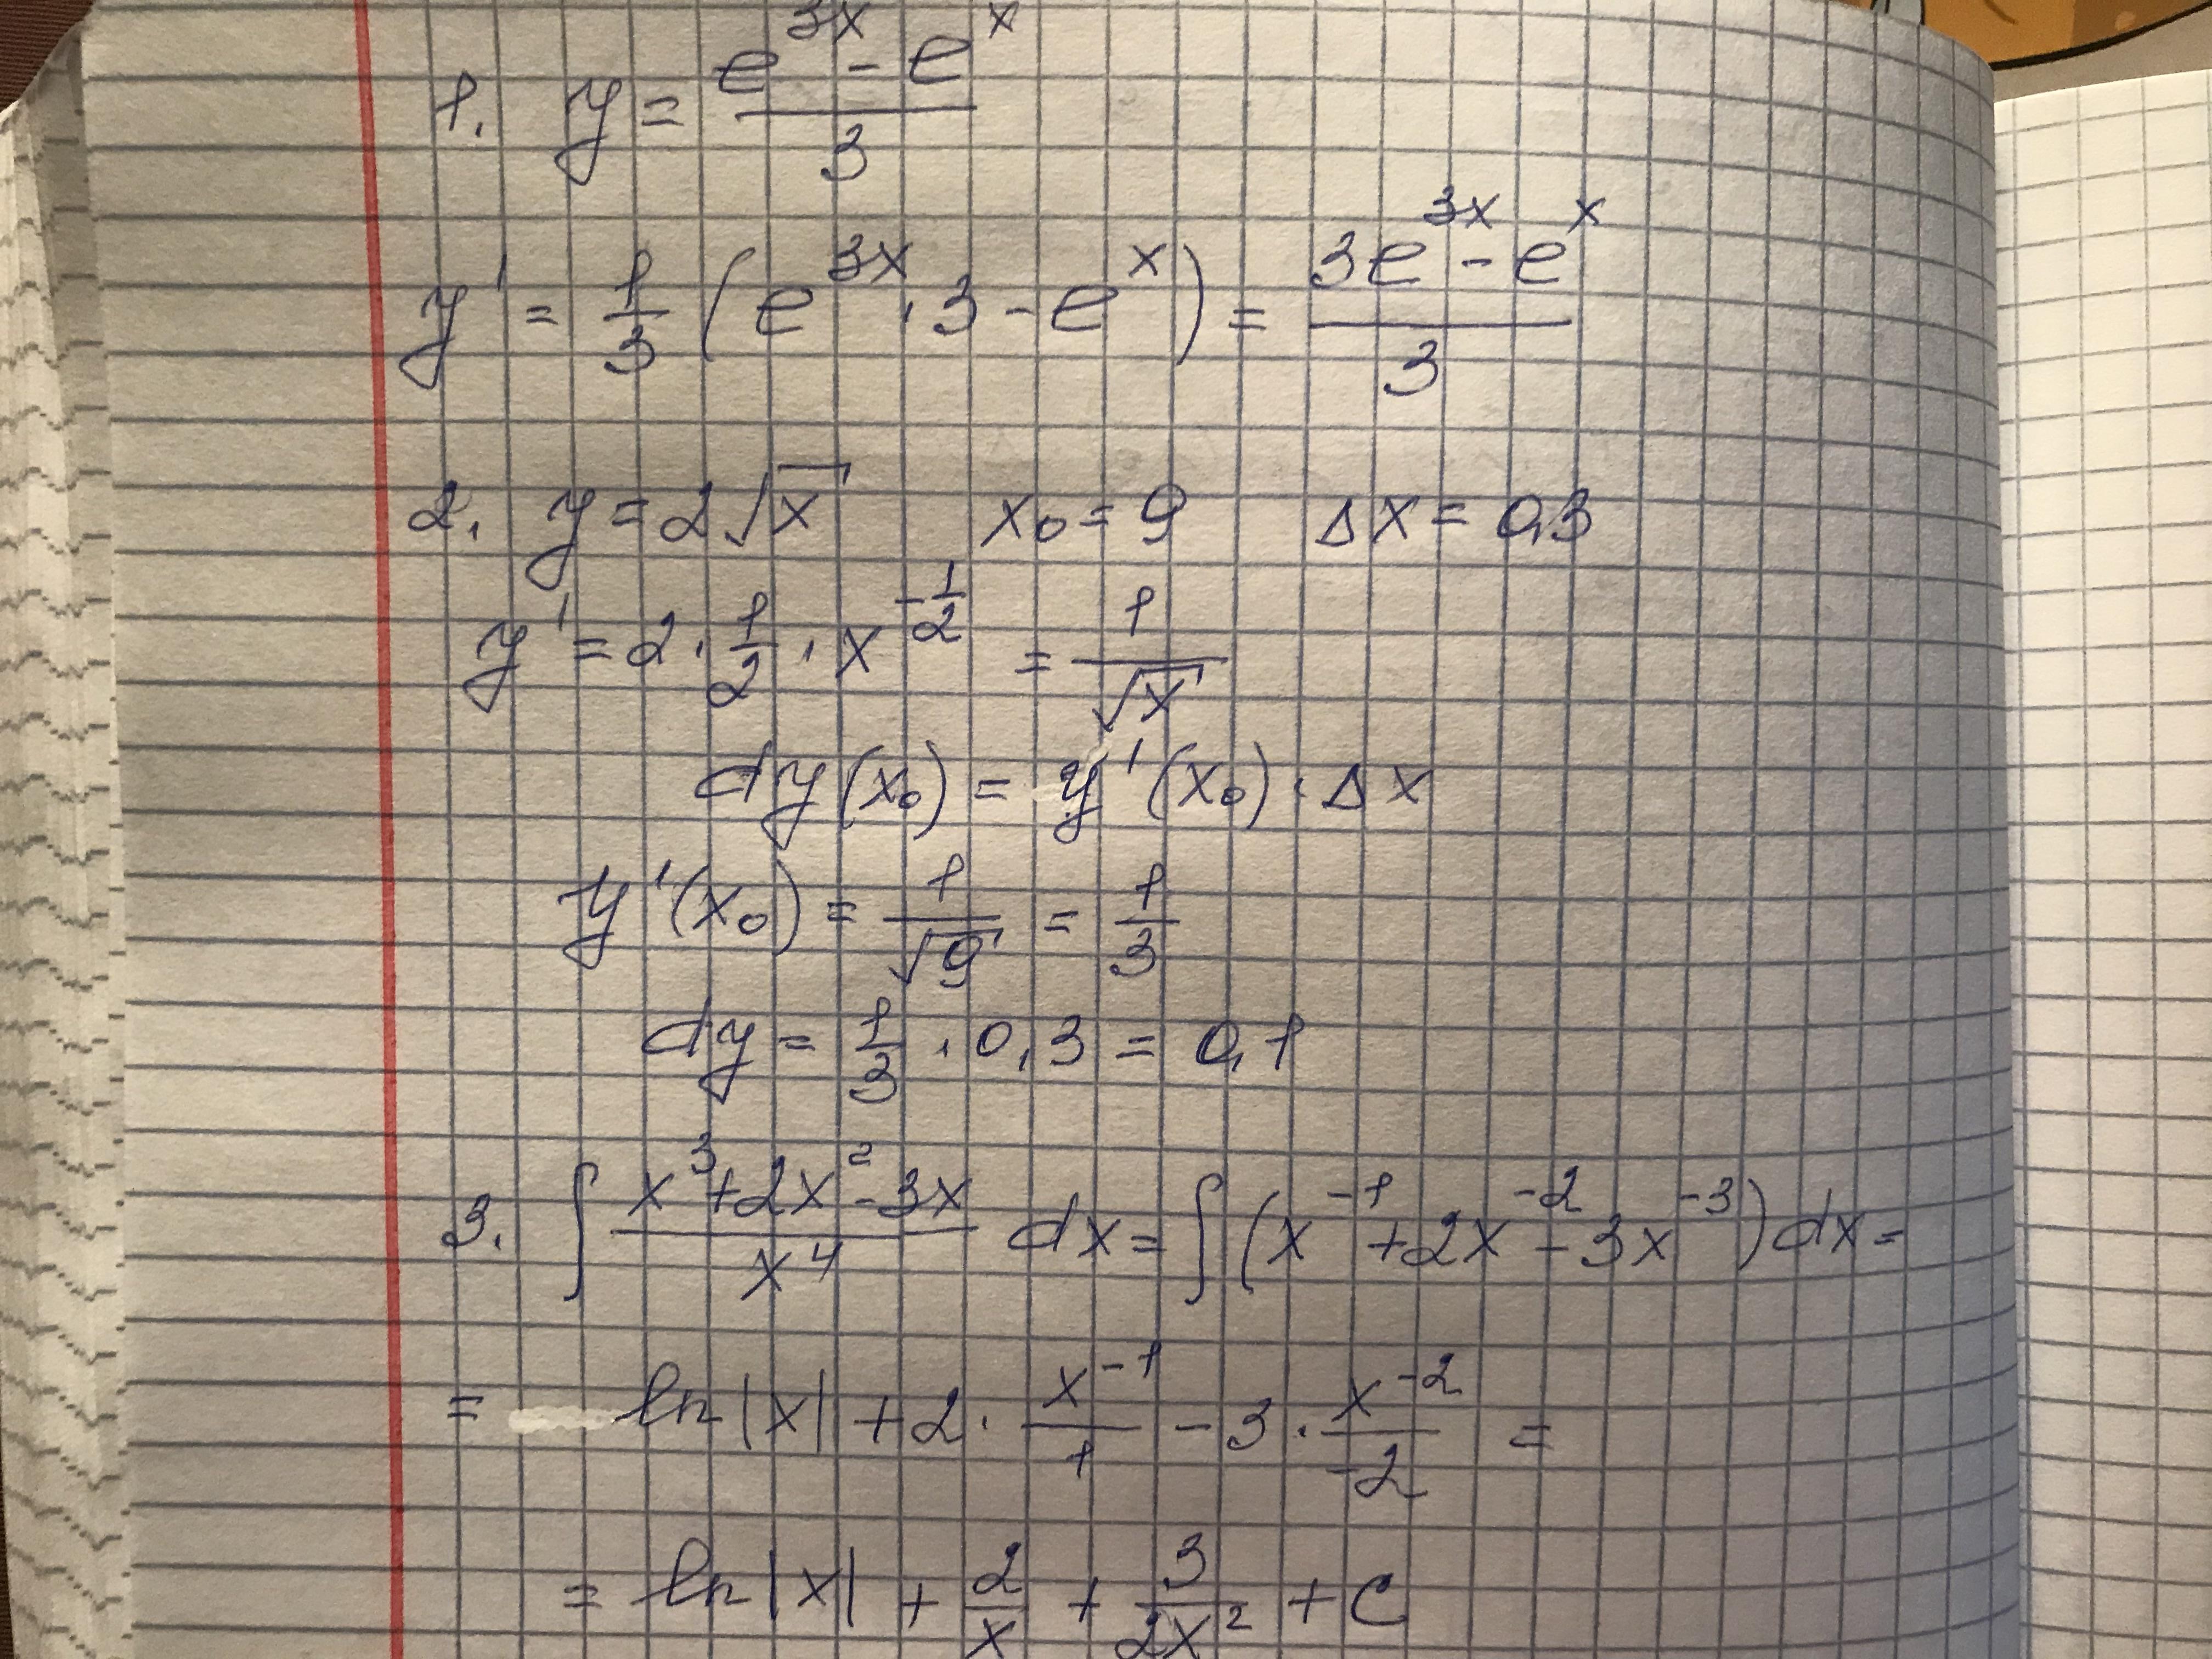 1. y = (e^(3x) - e^x)/3
y' = 1/3 (e^(3x) · 3 - e^x) = (3e^(3x) - e^x)/3
2. y = 2√x x₀ = 9 Δx = 0,3
y' = 2 · 1/2 · x^(-1/2) = 1/√x
dy(x₀) = y'(x₀) · Δx
y'(x₀) = 1/√9 = 1/3
dy = 1/3 · 0,3 = 0,1
3. ∫ (x³ + 2x² - 3x)/x⁴ dx = ∫ (x⁻¹ + 2x⁻² - 3x⁻³) dx =
= ln|x| + 2 · x⁻¹/1 - 3 · x⁻²/-2 =
= ln|x| + 2/x + 3/(2x²) + C